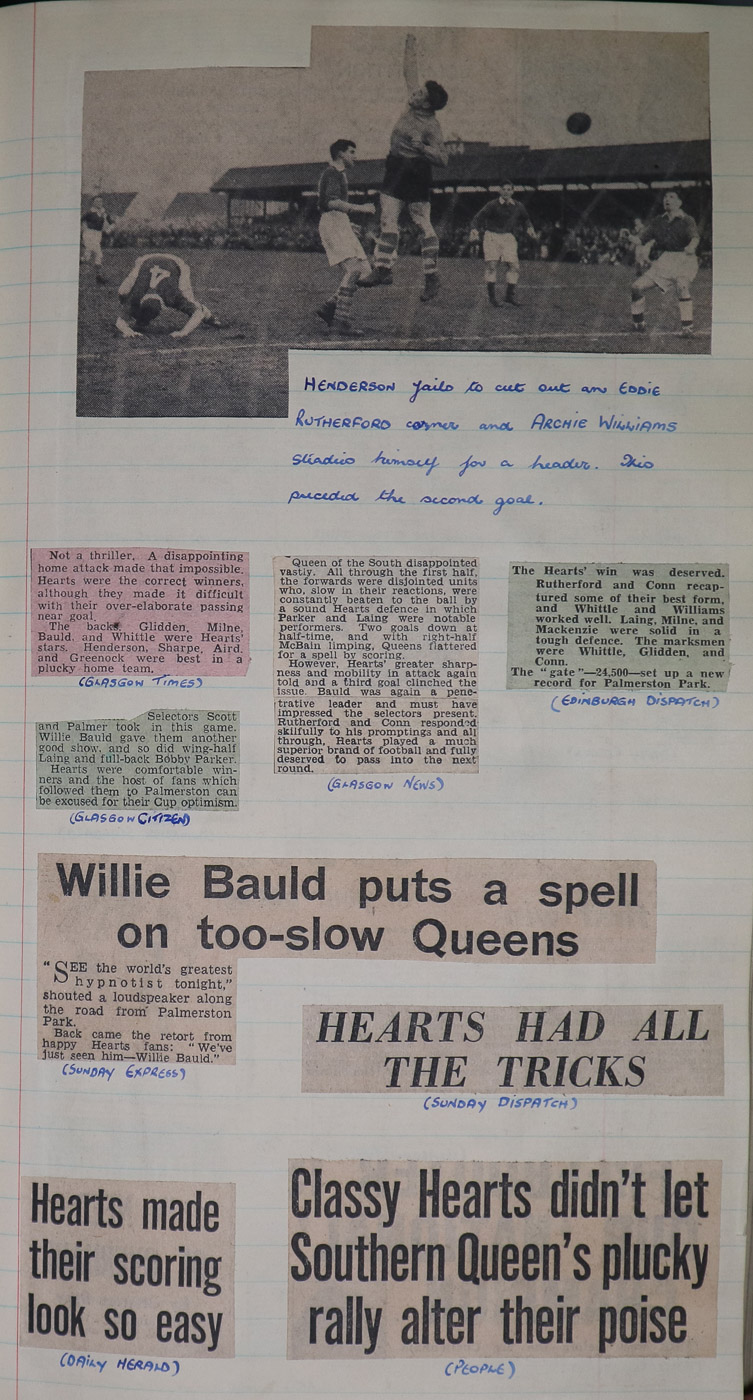 4
HENDERSON fails to cut out an EDDIE
RUTHERFORD corner and ARCHIE WILLIAMS
steadies himself for a header. This
preceded the second goal.
Not a thriller. A disappointing
home attack made that impossible.
Hearts were the correct winners,
although they made it difficult
with their over-elaborate passing
near goal.
The backs, Glidden, Milne,
Bauld, and Whittle were Hearts'
stars. Henderson, Sharpe, Aird,
and Greenock were best in a
plucky home team.
(GLASGOW TIMES)
Selectors Scott
and Palmer took in this game.
Willie Bauld gave them another
good show, and so did wing-half
Laing and full-back Bobby Parker.
Hearts were comfortable win-
ners and the host of fans which
followed them to Palmerston can
be excused for their Cup optimism.
(GLASGOW CITIZEN)
Queen of the South disappointed
vastly. All through the first half,
the forwards were disjointed units
who, slow in their reactions, were
constantly beaten to the ball by
a sound Hearts defence in which
Parker and Laing were notable
performers. Two goals down at
half-time, and with right-half
McBain limping, Queens flattered
for a spell by scoring.
However, Hearts' greater sharp-
ness and mobility in attack again
told and a third goal clinched the
issue. Bauld was again a pene-
trative leader and must have
impressed the selectors present.
Rutherford and Conn responded
skilfully to his promptings and all
through, Hearts played a much
superior brand of football and fully
deserved to pass into the next
round.
(GLASGOW NEWS)
The Hearts' win was deserved.
Rutherford and Conn recap-
tured some of their best form,
and Whittle and Williams
worked well. Laing, Milne, and
Mackenzie were solid in a
tough defence. The marksmen
were Whittle, Glidden, and
Conn.
The "gate"—24,500—set up a new
record for Palmerston Park.
(EDINBURGH DISPATCH)
Willie Bauld puts a spell
on too-slow Queens
"SEE the world's greatest
hypnotist tonight,"
shouted a loudspeaker along
the road from Palmerston
Park.
Back came the retort from
happy Hearts fans: "We've
just seen him—Willie Bauld."
(SUNDAY EXPRESS)
HEARTS HAD ALL
THE TRICKS
(SUNDAY DISPATCH)
Hearts made
their scoring
look so easy
(DAILY HERALD)
Classy Hearts didn't let
Southern Queen's plucky
rally alter their poise
(PEOPLE)